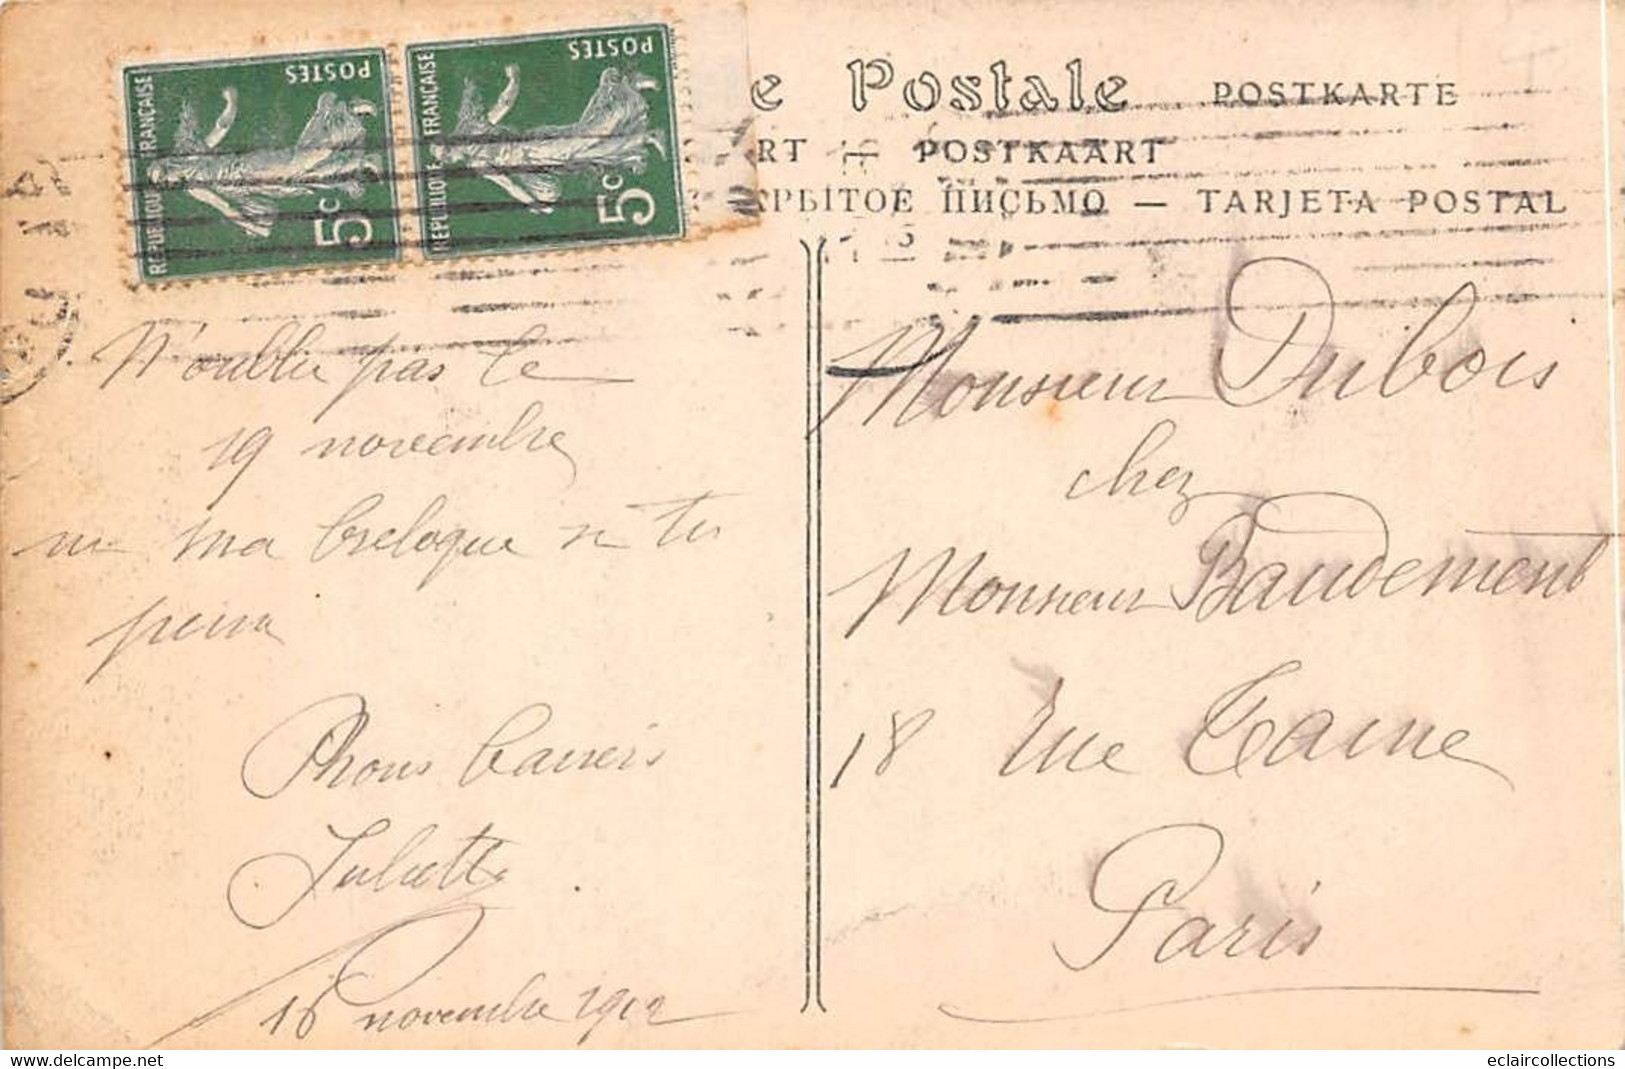 RÉPUBLIQUE FRANÇAISE
POSTES
5c
RÉPUBLIQUE FRANÇAISE
POSTES
5c
e Postale POSTKARTE
RT — POSTKAART
КРЫТОЕ ПИСЬМО — TARJETA POSTAL
N'oublie pas le
19 novembre
ni ma breloque si tu
peux
baisers
Juliette
16 novembre 1912
Monsieur Dubois
chez
Monsieur Baudemont
18 rue Taine
Paris
eclaircollections